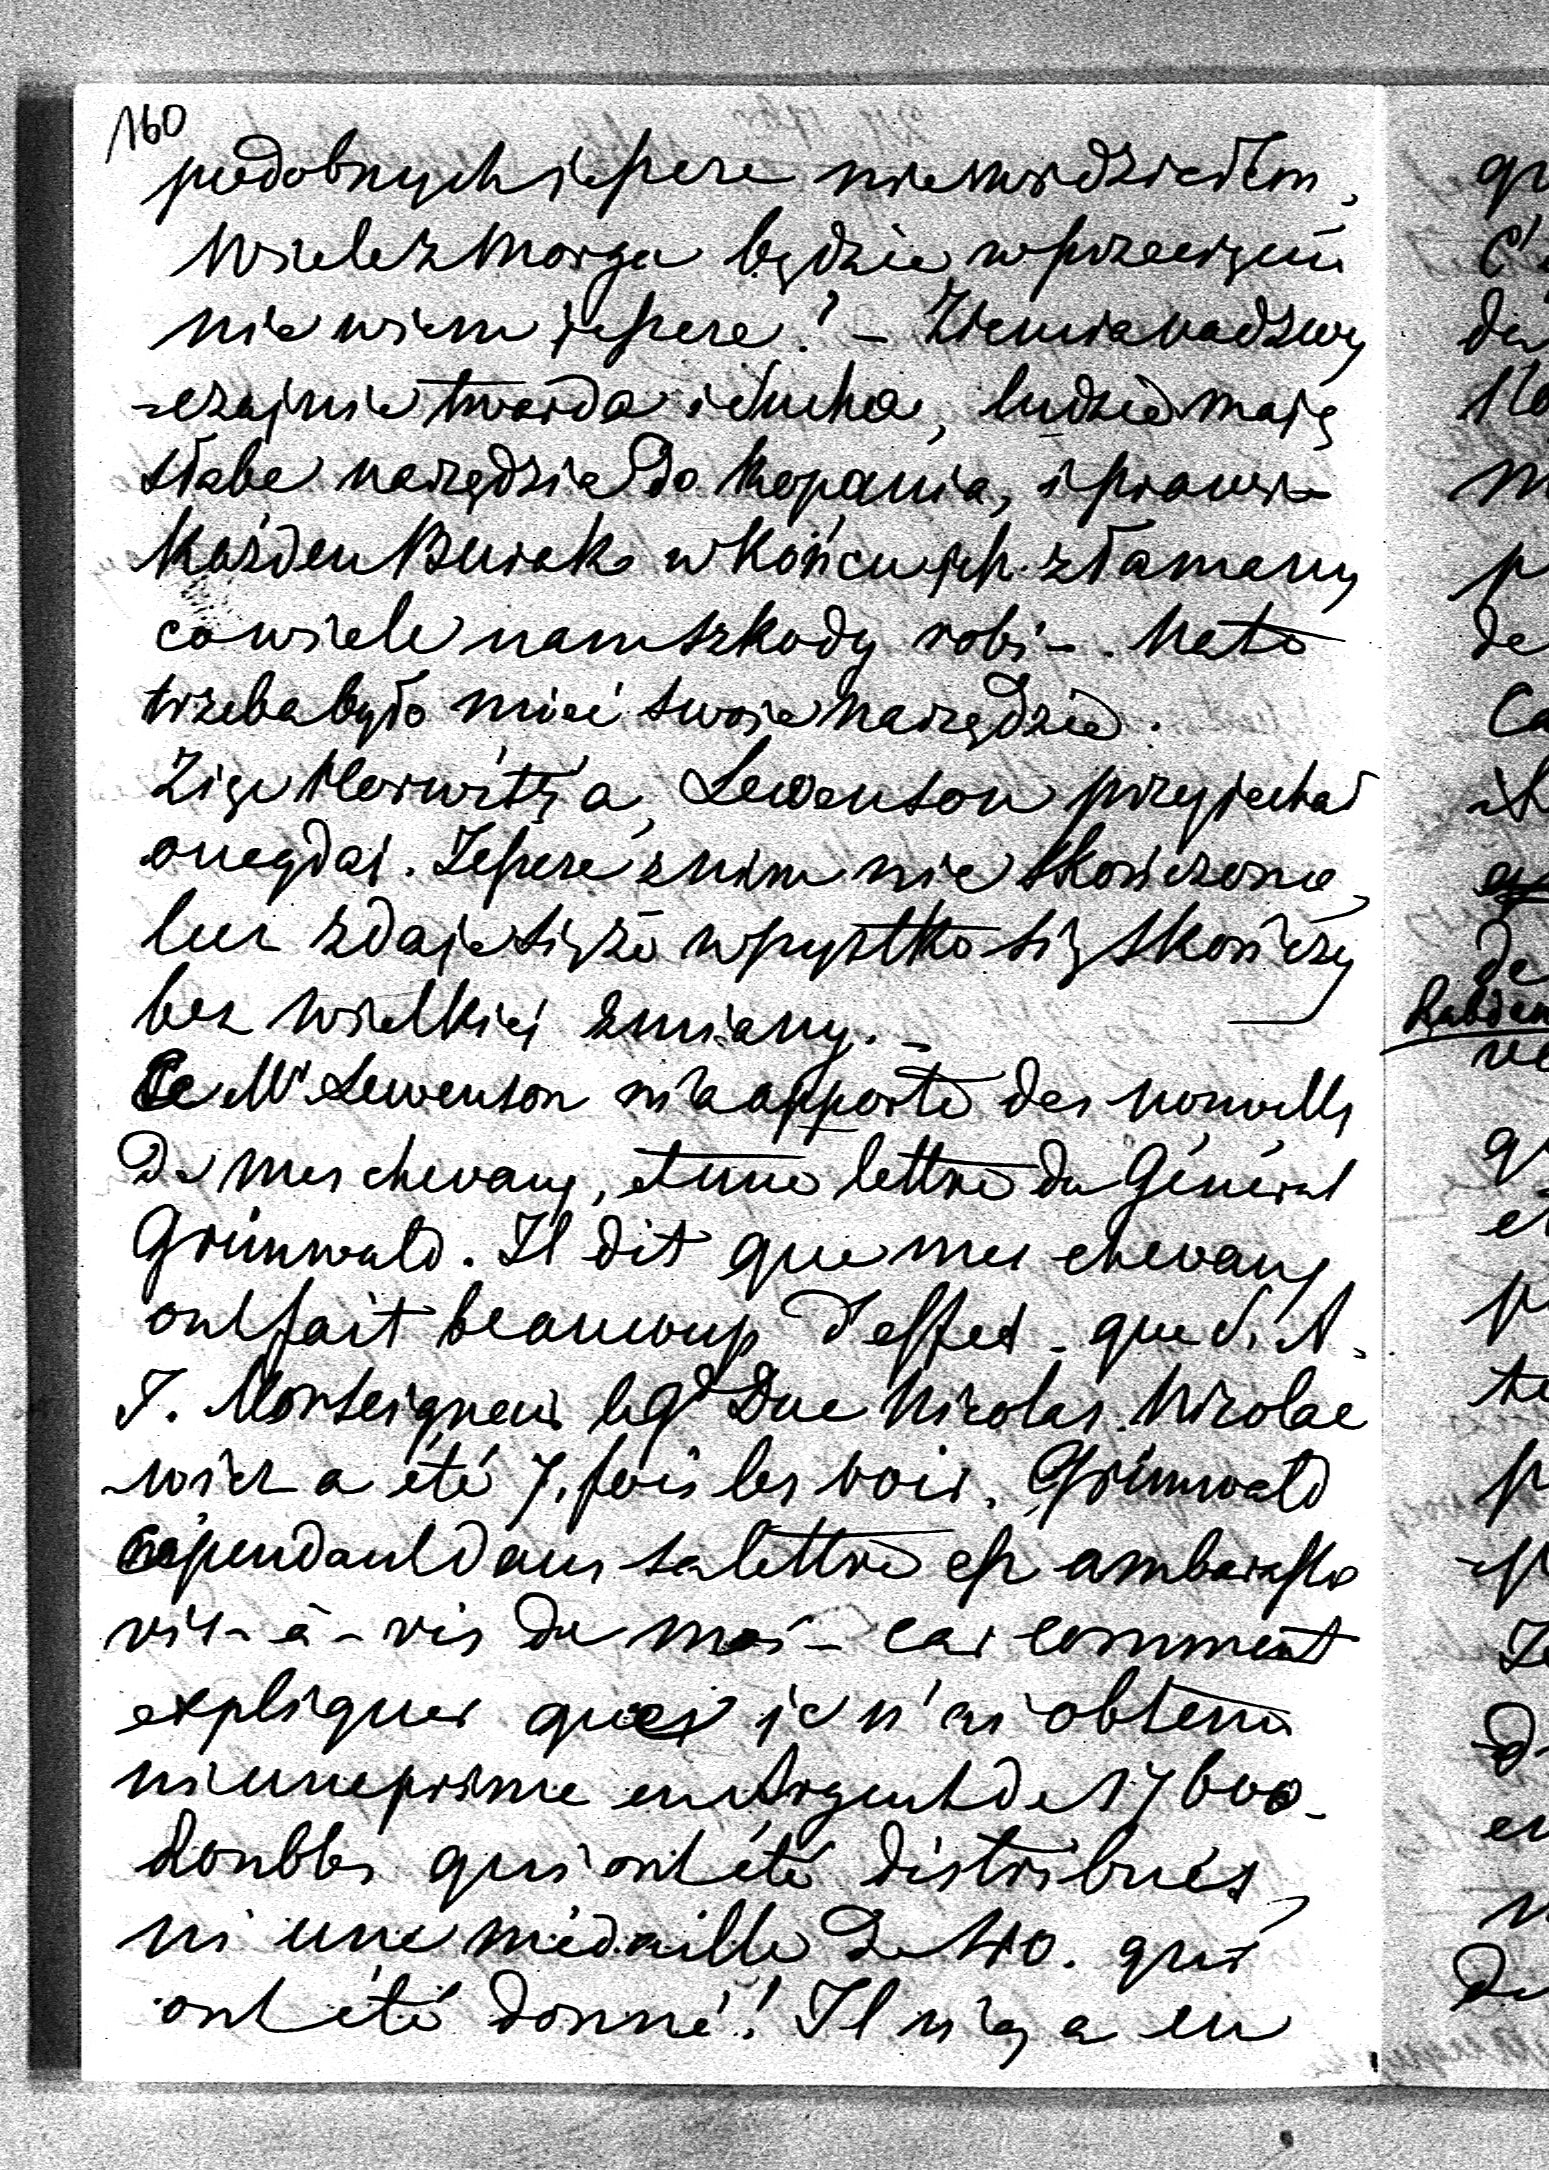 160
podobnych jeszcze niewidziałem,
Wielez Morga będzie w przecięciu
nie wiem jeszcze! – Ziemia nadzwy
-czajnie twarda i sucha, ludzie mają
słabe narzędzia do kopania, i prawie
każden Burak w końcu jest złamany
co wiele nam szkody robi –. Na to
trzeba było mieć swoje narzędzie.
Zięć Horwitza, Lewenson przyjechał
onegdaj. Jeszcze z nim nie skończone,
lecz zdaje się że wszystko się skończy
bez wielkiej zmiany. –
Ce Mr Lewenson m'a apporté des nouvells
de mes chevaux, et une lettre du Général
Grünwald. Il dit que mes chevaux
ont fait beaucoup d'effet – que S. A.
I. Monseigneur le Gd Duc Nicolas Nicolae
-wicz a été 7. fois les voir. Grünwald
cependant dans sa lettre est ambarassé
vis-à-vis de moi – car comment
expliquer que je n'ai obtenu
ni une prime en Argent de 17600
Roubles qui ont été distribués,
ni une médaille de 40. qui
ont été donné! Il n'y a eu